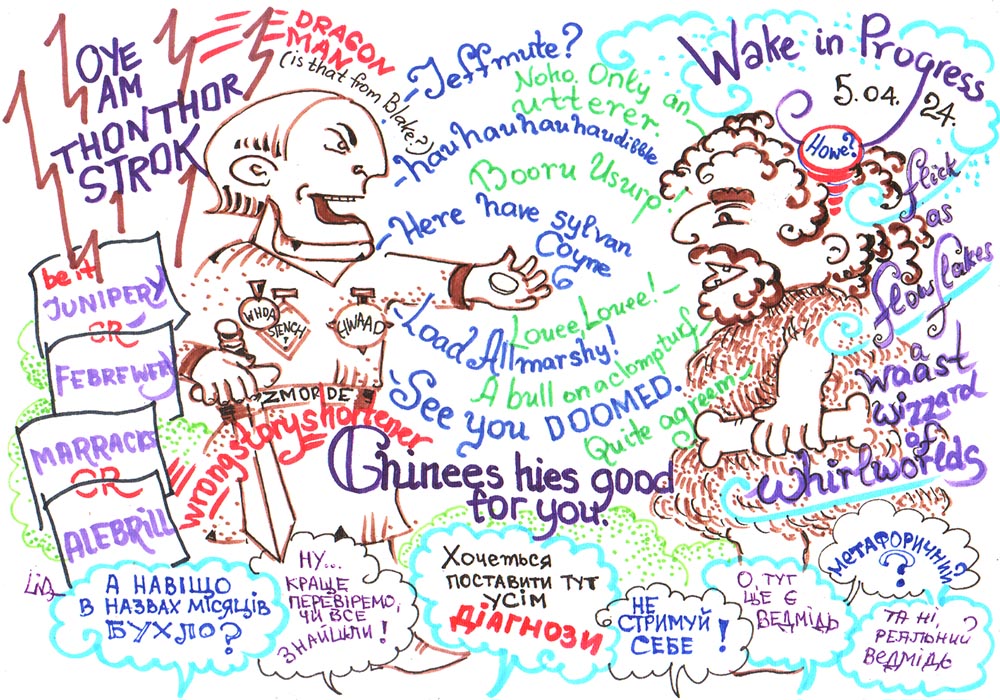 OYE
AM
THONTHOR
STROK
DRAGON
MAN
(is that from Blake?)
Jeffmute?
Noho. Only an
utterer.
hauhauhauhaudibble
Booru Usurp!
Here have sylvan
Coyne
6
Louee, Louee!
Load Allmarshy!
A bull on a clompturf
See you DOOMED.
Quite agreem
Wake in Progress
5.04.
24.
Howe?
flick
as
flowflakes
a
waast
wizzard
of
whirlworlds
be it
JUNIPERY
OR
FEBREWERY
MARRACKS
OR
ALEBRILL
WHDA
STENCH!
HWAAD
ZMORDE
wrongstoryshortener
Chinees hies good
for you.
А НАВІЩО
В НАЗВАХ МІСЯЦІВ
БУХЛО?
НУ...
КРАЩЕ
ПЕРЕВІРЕМО,
ЧИ ВСЕ
ЗНАЙШЛИ!
Хочеться
ПОСТАВИТИ ТУТ
УСІМ
ДІАГНОЗИ
НЕ
СТРИМУЙ
СЕБЕ!
О, ТУТ
ЩЕ Є
ВЕДМІДЬ
МЕТАФОРИЧНИЙ?
?
ТА НІ,
РЕАЛЬНИЙ
ВЕДМІДЬ